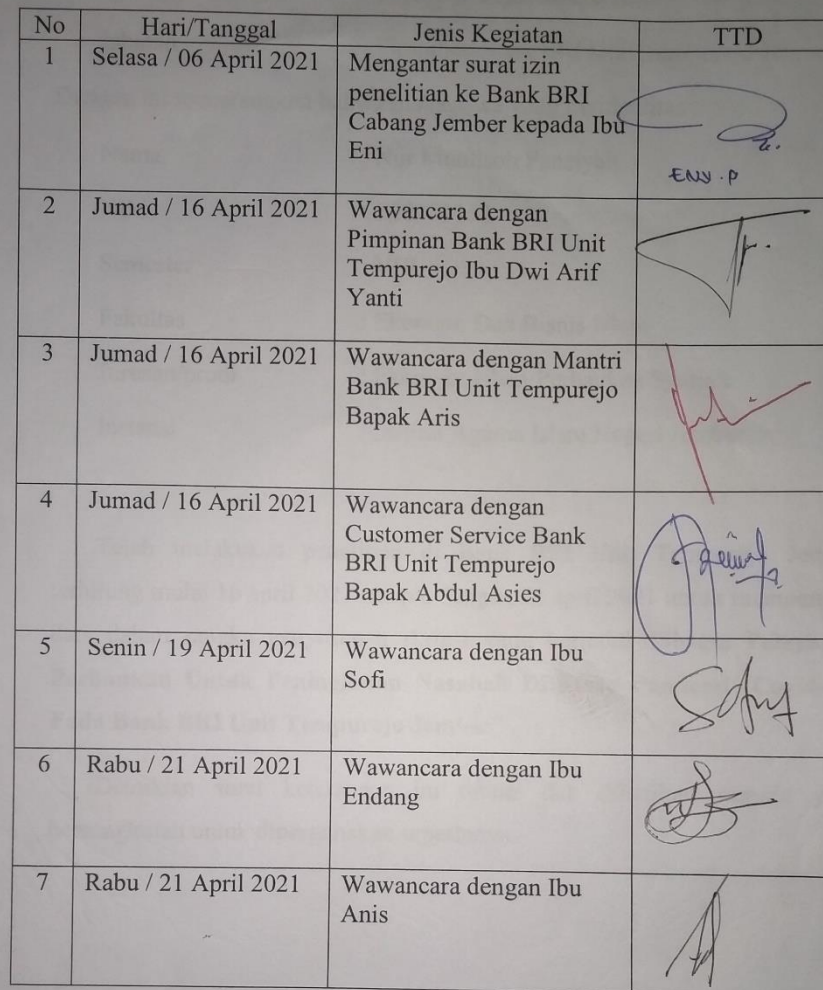 No Hari/Tanggal Jenis Kegiatan TTD
1 Selasa / 06 April 2021 Mengantar surat izin
penelitian ke Bank BRI
Cabang Jember kepada Ibu
Eni
ENY . P
2 Jumad / 16 April 2021 Wawancara dengan
Pimpinan Bank BRI Unit
Tempurejo Ibu Dwi Arif
Yanti
3 Jumad / 16 April 2021 Wawancara dengan Mantri
Bank BRI Unit Tempurejo
Bapak Aris
4 Jumad / 16 April 2021 Wawancara dengan
Customer Service Bank
BRI Unit Tempurejo
Bapak Abdul Asies
5 Senin / 19 April 2021 Wawancara dengan Ibu
Sofi
6 Rabu / 21 April 2021 Wawancara dengan Ibu
Endang
7 Rabu / 21 April 2021 Wawancara dengan Ibu
Anis